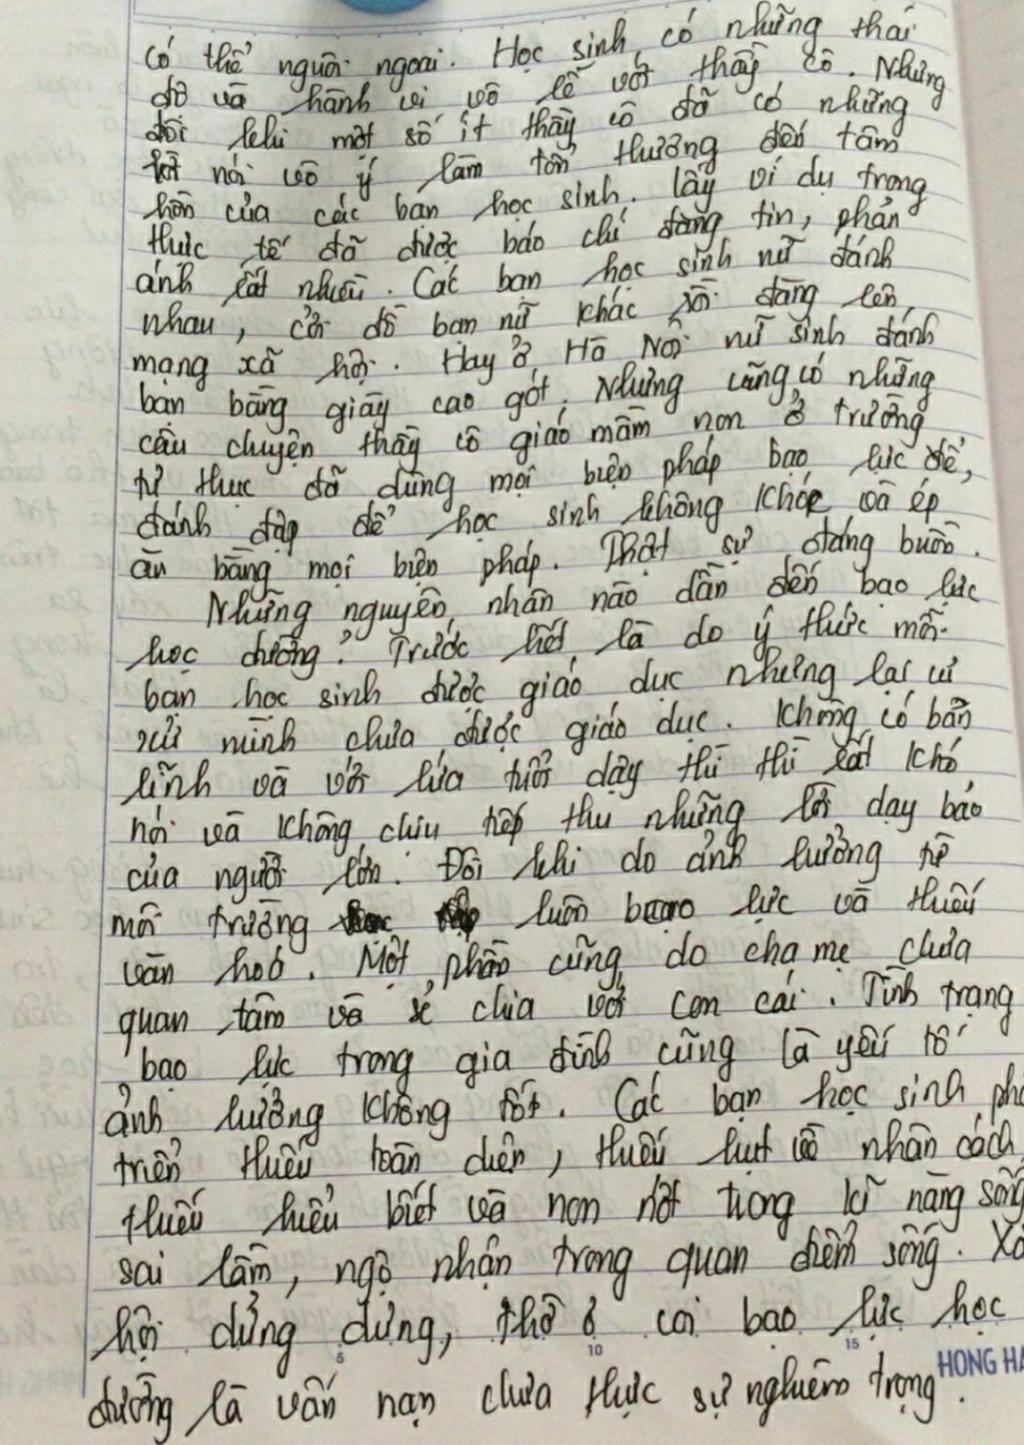 có thể người ngoài. Học sinh có những thái
độ và hành vi vô lễ với thầy cô. Nhưng
đôi khi một số ít thầy cô đã có những
lời nói vô ý làm tổn thương đến tâm
hồn của các bạn học sinh. Lấy ví dụ trong
thực tế đã được báo chí đăng tin, phản
ánh rất nhiều. Các bạn học sinh nữ đánh
nhau, cởi đồ bạn nữ khác rồi đăng lên
mạng xã hội. Hay ở Hà Nội nữ sinh đánh
bạn bằng giày cao gót. Nhưng cũng có những
câu chuyện thầy cô giáo mầm non ở trường
tư thục đã dùng mọi biện pháp bạo lực để,
đánh đập để học sinh không khóc và ép
ăn bằng mọi biện pháp. Thật sự đáng buồn.
Những nguyên nhân nào dẫn đến bạo lực
học đường? Trước hết là do ý thức mỗi
bạn học sinh được giáo dục nhưng lại cư
xử mình chưa được giáo dục. Không có bản
lĩnh và với lứa tuổi dậy thì thì rất khó
nói và không chịu tiếp thu những lời dạy bảo
của người lớn. Đôi khi do ảnh hưởng từ
môi trường luôn bạo lực và thiếu
văn hoá. Một phần cũng do cha mẹ chưa
quan tâm và sẻ chia với con cái. Tình trạng
bạo lực trong gia đình cũng là yếu tố
ảnh hưởng không tốt. Các bạn học sinh phá
triển thiếu toàn diện, thiếu hụt về nhân cách
thiếu hiểu biết và non nớt trong kĩ năng sống
sai lầm, ngộ nhận trong quan điểm sống. Xã
hội dửng dưng, thờ ơ coi bạo lực học
đường là vấn nạn chưa thực sự nghiêm trọng.
5 10 15 HONG HA